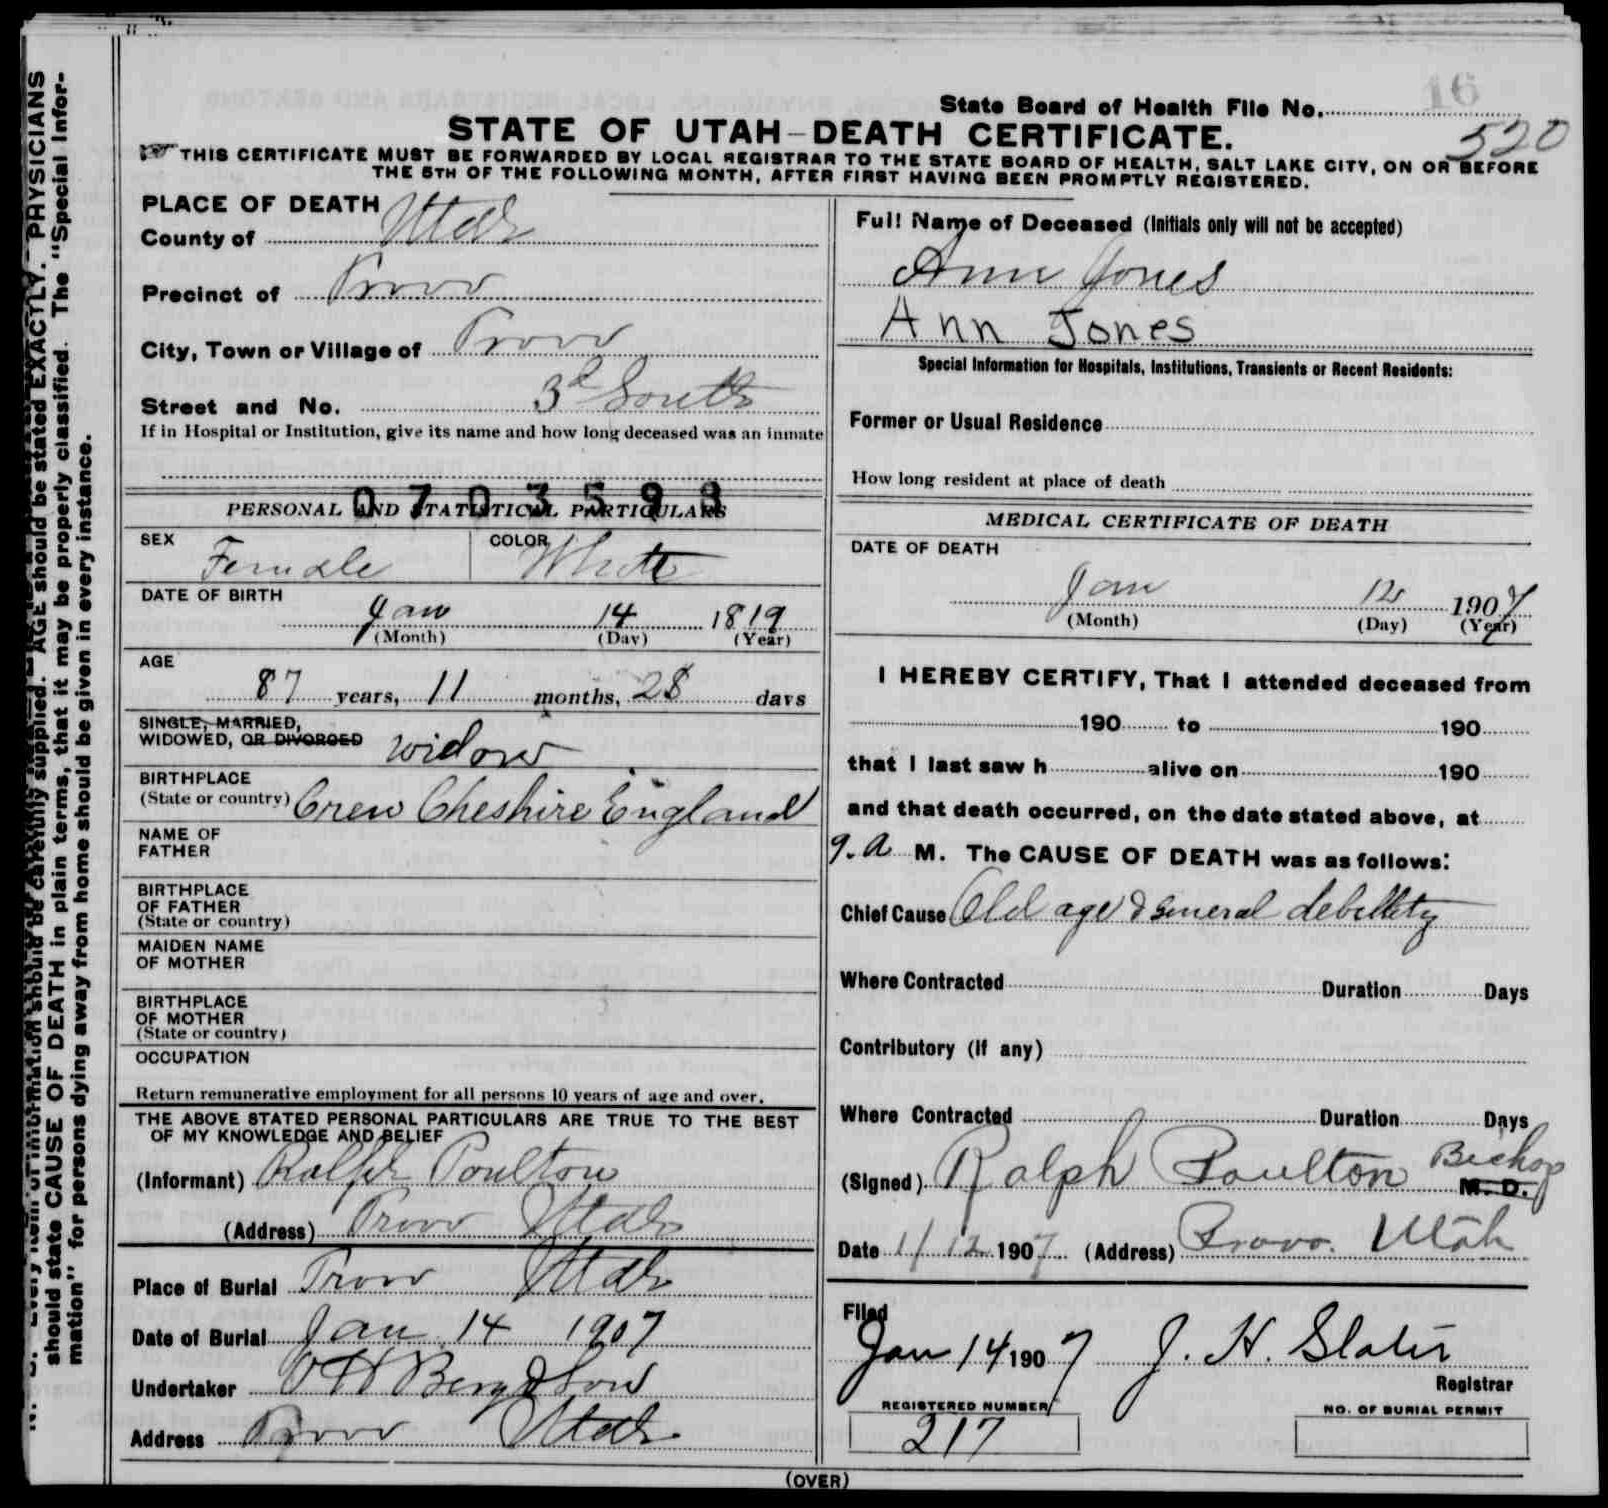 16
State Board of Health File No.
520
STATE OF UTAH—DEATH CERTIFICATE.
THIS CERTIFICATE MUST BE FORWARDED BY LOCAL REGISTRAR TO THE STATE BOARD OF HEALTH, SALT LAKE CITY, ON OR BEFORE
THE 5TH OF THE FOLLOWING MONTH, AFTER FIRST HAVING BEEN PROMPTLY REGISTERED.
should be carefully supplied. AGE should be stated EXACTLY. PHYSICIANS
should state CAUSE OF DEATH in plain terms, that it may be properly classified. The "Special Infor-
mation" for persons dying away from home should be given in every instance.
PLACE OF DEATH
County of Utah
Precinct of Provo
City, Town or Village of Provo
Street and No. 3d South
If in Hospital or Institution, give its name and how long deceased was an inmate
0703593
PERSONAL AND STATISTICAL PARTICULARS
SEX Female COLOR White
DATE OF BIRTH
Jan 14 1819
(Month) (Day) (Year)
AGE
87 years, 11 months, 28 days
SINGLE, MARRIED,
WIDOWED, OR DIVORCED widow
BIRTHPLACE
(State or country) Crew Cheshire England
NAME OF
FATHER
BIRTHPLACE
OF FATHER
(State or country)
MAIDEN NAME
OF MOTHER
BIRTHPLACE
OF MOTHER
(State or country)
OCCUPATION
Return remunerative employment for all persons 10 years of age and over.
THE ABOVE STATED PERSONAL PARTICULARS ARE TRUE TO THE BEST
OF MY KNOWLEDGE AND BELIEF
(Informant) Ralph Poulton
(Address) Provo Utah
Place of Burial Provo Utah
Date of Burial Jan 14 1907
Undertaker O H Berg & Son
Address Provo Utah
Full Name of Deceased (Initials only will not be accepted)
Ann Jones
Ann Jones
Special Information for Hospitals, Institutions, Transients or Recent Residents:
Former or Usual Residence
How long resident at place of death
MEDICAL CERTIFICATE OF DEATH
DATE OF DEATH
Jan 12 1907
(Month) (Day) (Year)
I HEREBY CERTIFY, That I attended deceased from
190 to 190
that I last saw h alive on 190
and that death occurred, on the date stated above, at
9. a M. The CAUSE OF DEATH was as follows:
Chief Cause Old age & general debillety
Where Contracted Duration Days
Contributory (if any)
Where Contracted Duration Days
(Signed) Ralph Poulton Bishop M. D.
Date 1/12 1907 (Address) Provo. Utah
Filed
Jan 14 1907 J. H. Slater
Registrar
REGISTERED NUMBER NO. OF BURIAL PERMIT
217
(OVER)